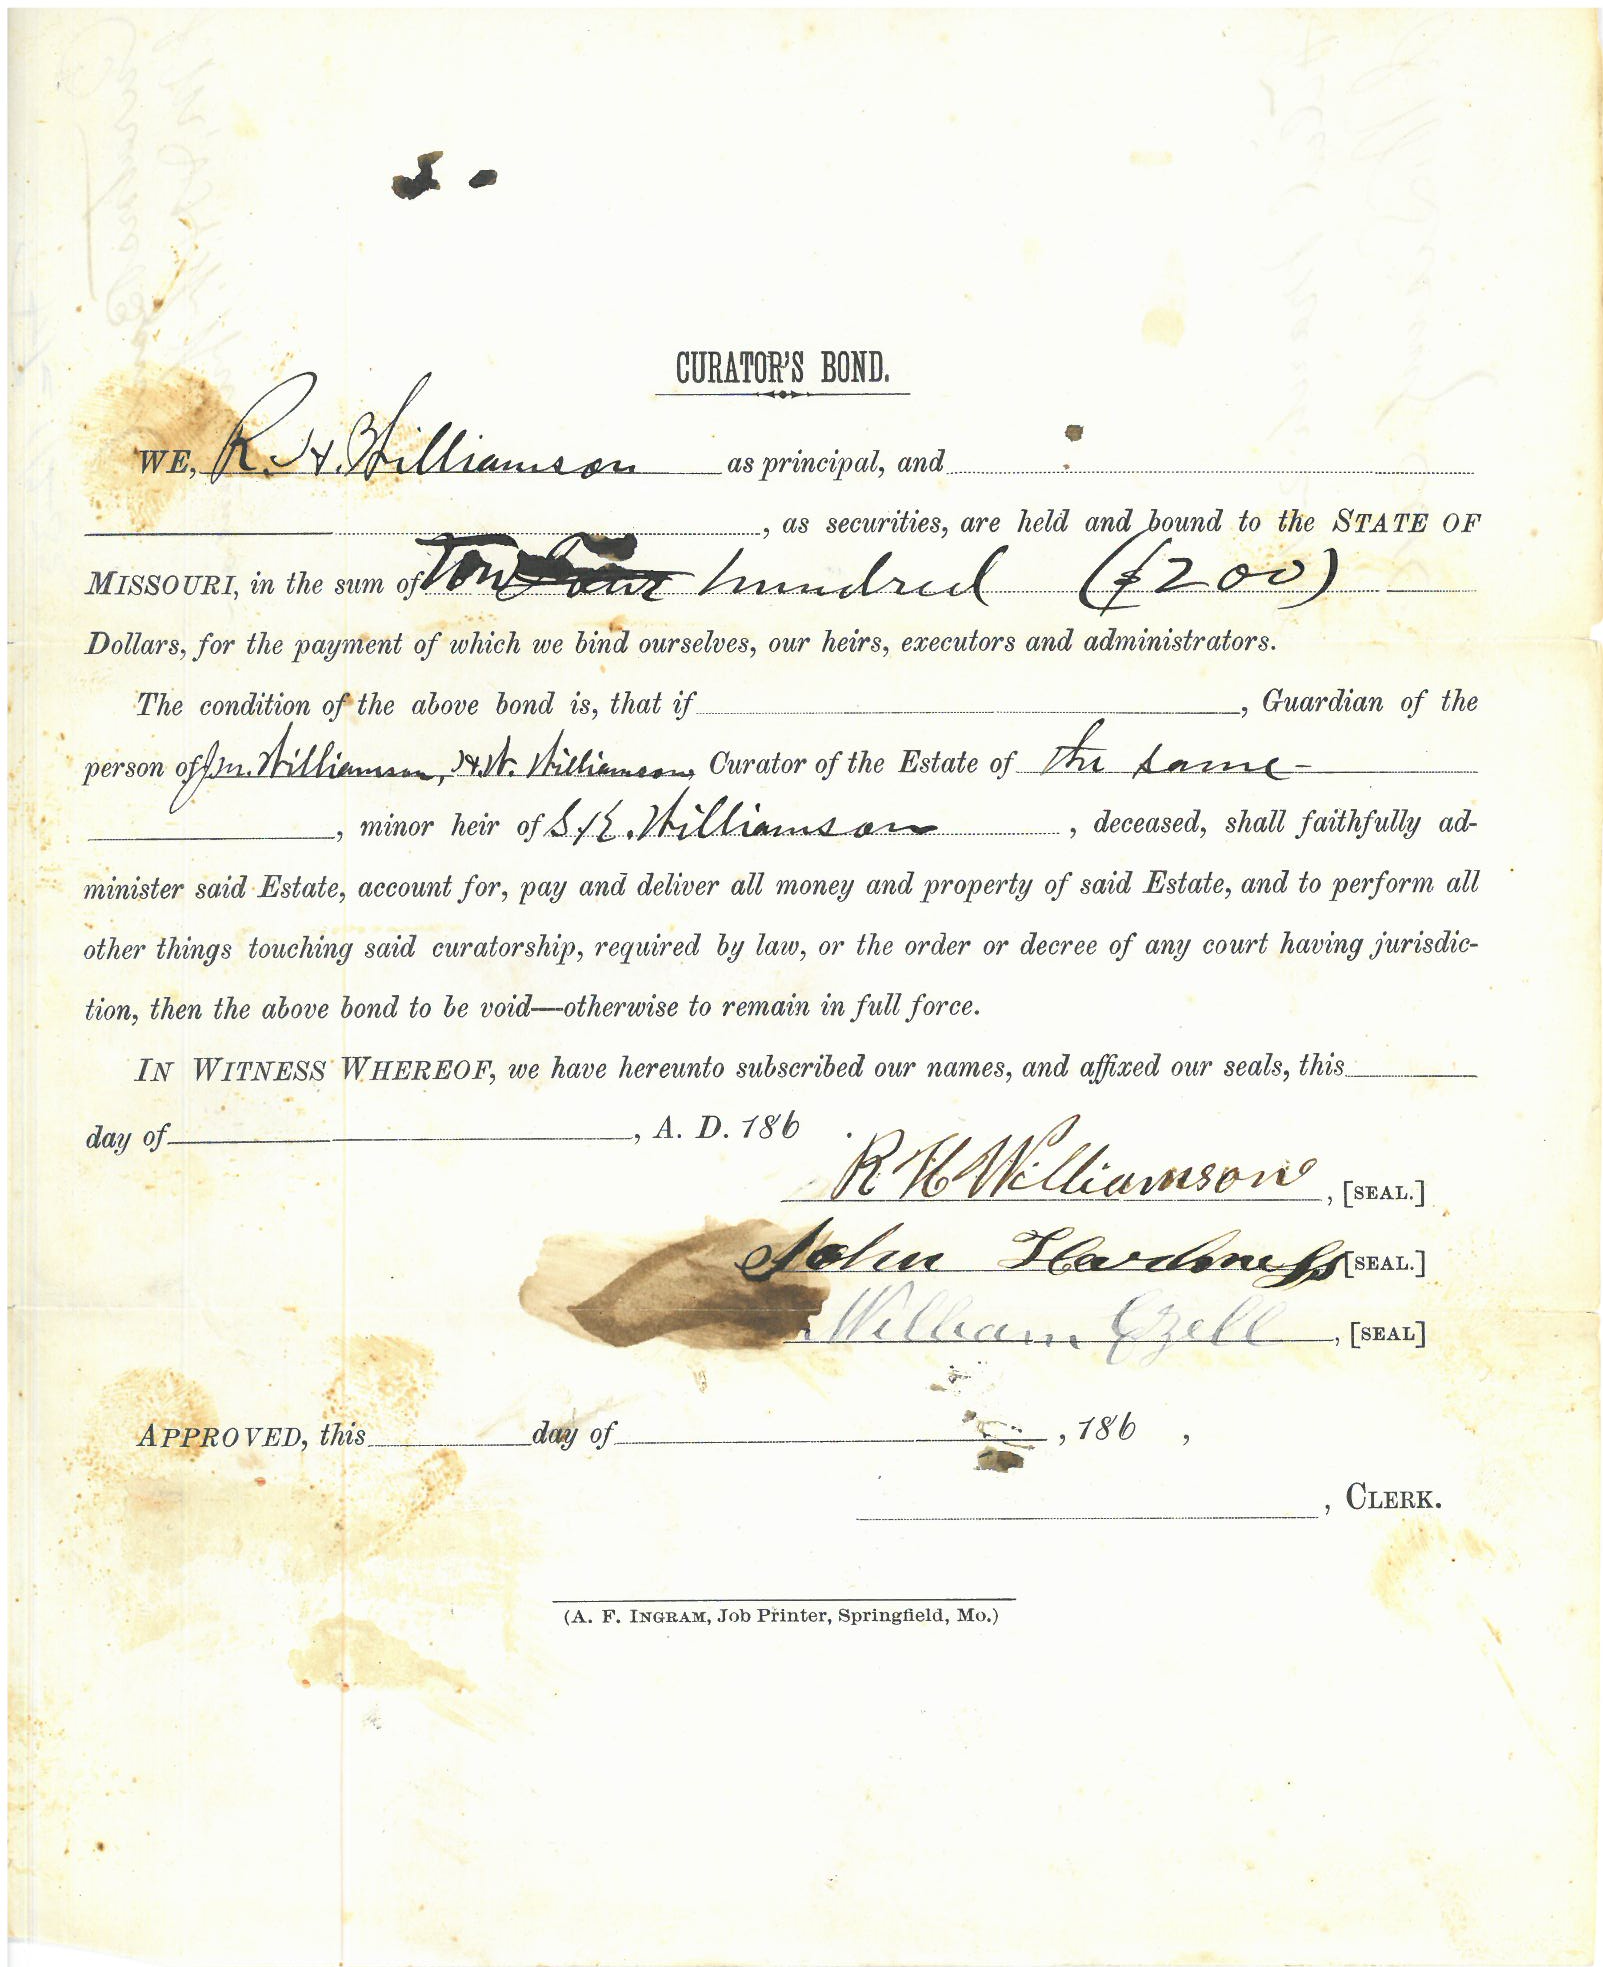 CURATOR'S BOND.
WE, R. H. Williamson as principal, and
, as securities, are held and bound to the STATE OF
MISSOURI, in the sum of Tow hundred ($200)
Dollars, for the payment of which we bind ourselves, our heirs, executors and administrators.
The condition of the above bond is, that if , Guardian of the
person of J.M. Williamson, H.W. Williamson, Curator of the Estate of the same
, minor heir of S.E. Williamson , deceased, shall faithfully ad-
minister said Estate, account for, pay and deliver all money and property of said Estate, and to perform all
other things touching said curatorship, required by law, or the order or decree of any court having jurisdic-
tion, then the above bond to be void—otherwise to remain in full force.
IN WITNESS WHEREOF, we have hereunto subscribed our names, and affixed our seals, this
day of , A. D. 186 .
R H Williamson , [SEAL.]
John Hardness [SEAL.]
William Ezell , [SEAL]
APPROVED, this day of , 186 ,
, CLERK.
(A. F. INGRAM, Job Printer, Springfield, Mo.)